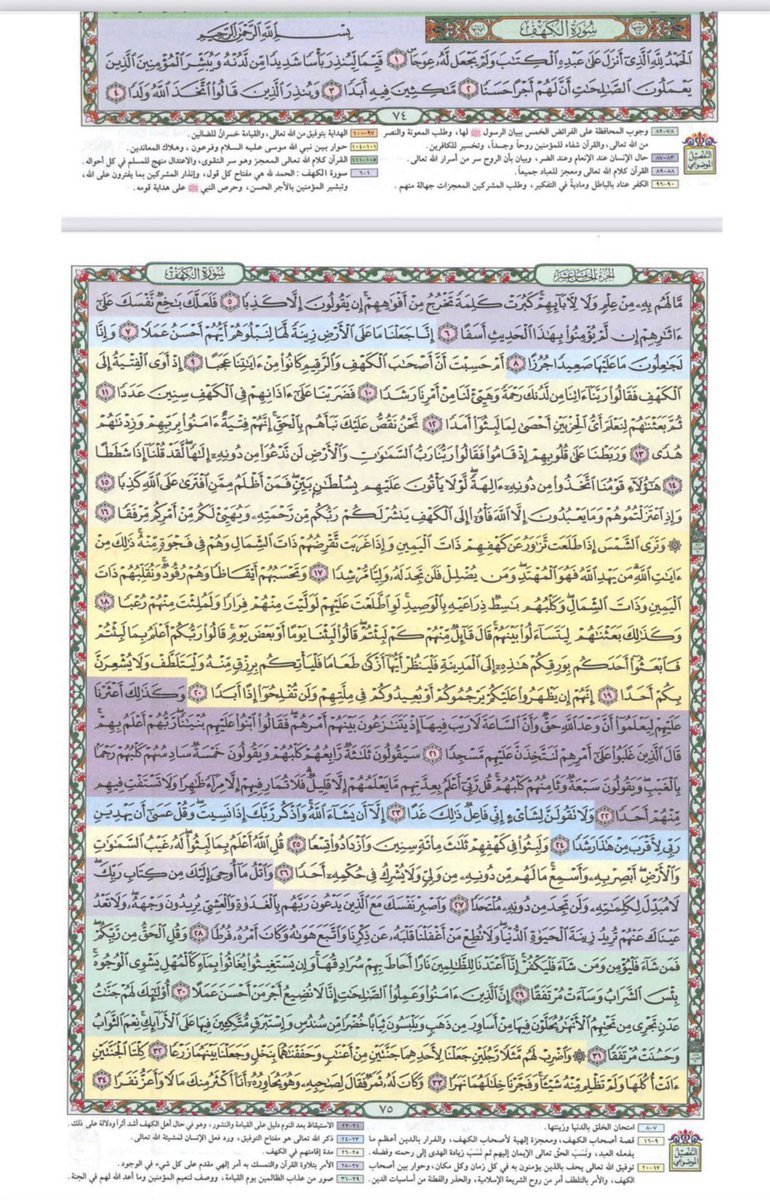 سُورَةُ الكَهْفِ
بِسْمِ اللَّهِ الرَّحْمَٰنِ الرَّحِيمِ
الْحَمْدُ لِلَّهِ الَّذِي أَنزَلَ عَلَىٰ عَبْدِهِ الْكِتَابَ وَلَمْ يَجْعَل لَّهُ عِوَجًا ١ قَيِّمًا لِّيُنذِرَ بَأْسًا شَدِيدًا مِّن لَّدُنْهُ وَيُبَشِّرَ الْمُؤْمِنِينَ الَّذِينَ
يَعْمَلُونَ الصَّالِحَاتِ أَنَّ لَهُمْ أَجْرًا حَسَنًا ٢ مَّاكِثِينَ فِيهِ أَبَدًا ٣ وَيُنذِرَ الَّذِينَ قَالُوا اتَّخَذَ اللَّهُ وَلَدًا ٤
٧٤
التفصيل الموضوعي
٧٨-٨٢ وجوب المحافظة على الفرائض الخمس ببيان الرسول ﷺ لها، وطلب المعونة والنصر
من الله تعالى، والقرآن شفاء للمؤمنين روحاً وجسداً، وتخسير للكافرين.
٨٣-٨٧ حال الإنسان عند الإنعام وعند الضر، وبيان بأن الروح سر من أسرار الله تعالى.
٨٨-٨٩ القرآن كلام الله تعالى ومعجز للعباد جميعاً.
٩٠-٩٦ الكفر عناد بالباطل ومادية في التفكير، وطلب المشركين المعجزات جهالة منهم.
٩٧-١٠٠ الهداية بتوفيق من الله تعالى، والقيامة خسران للضالين.
١٠١-١٠٤ حوار بين نبي الله موسى عليه السلام وفرعون، وهلاك المعاندين.
١٠٥-١١١ القرآن كلام الله تعالى المعجز وهو سر التقوى، والاعتدال منهج للمسلم في كل أحواله.
١-٦ سورة الكهف: الحمد لله هي مفتاح كل قول، وإنذار المشركين بما يفترون على الله،
وتبشير المؤمنين بالأجر الحسن، وحرص النبي ﷺ على هداية قومه.
الجزء الخامس عشر
سُورَةُ الكَهْفِ
مَّا لَهُم بِهِ مِنْ عِلْمٍ وَلَا لِآبَائِهِمْ كَبُرَتْ كَلِمَةً تَخْرُجُ مِنْ أَفْوَاهِهِمْ إِن يَقُولُونَ إِلَّا كَذِبًا ٥ فَلَعَلَّكَ بَاخِعٌ نَّفْسَكَ عَلَىٰ
آثَارِهِمْ إِن لَّمْ يُؤْمِنُوا بِهَٰذَا الْحَدِيثِ أَسَفًا ٦ إِنَّا جَعَلْنَا مَا عَلَى الْأَرْضِ زِينَةً لَّهَا لِنَبْلُوَهُمْ أَيُّهُمْ أَحْسَنُ عَمَلًا ٧ وَإِنَّا
لَجَاعِلُونَ مَا عَلَيْهَا صَعِيدًا جُرُزًا ٨ أَمْ حَسِبْتَ أَنَّ أَصْحَابَ الْكَهْفِ وَالرَّقِيمِ كَانُوا مِنْ آيَاتِنَا عَجَبًا ٩ إِذْ أَوَى الْفِتْيَةُ إِلَى
الْكَهْفِ فَقَالُوا رَبَّنَا آتِنَا مِن لَّدُنكَ رَحْمَةً وَهَيِّئْ لَنَا مِنْ أَمْرِنَا رَشَدًا ١٠ فَضَرَبْنَا عَلَىٰ آذَانِهِمْ فِي الْكَهْفِ سِنِينَ عَدَدًا ١١
ثُمَّ بَعَثْنَاهُمْ لِنَعْلَمَ أَيُّ الْحِزْبَيْنِ أَحْصَىٰ لِمَا لَبِثُوا أَمَدًا ١٢ نَّحْنُ نَقُصُّ عَلَيْكَ نَبَأَهُم بِالْحَقِّ إِنَّهُمْ فِتْيَةٌ آمَنُوا بِرَبِّهِمْ وَزِدْنَاهُمْ
هُدًى ١٣ وَرَبَطْنَا عَلَىٰ قُلُوبِهِمْ إِذْ قَامُوا فَقَالُوا رَبُّنَا رَبُّ السَّمَاوَاتِ وَالْأَرْضِ لَن نَّدْعُوَ مِن دُونِهِ إِلَٰهًا لَّقَدْ قُلْنَا إِذًا شَطَطًا
١٤ هَٰؤُلَاءِ قَوْمُنَا اتَّخَذُوا مِن دُونِهِ آلِهَةً لَّوْلَا يَأْتُونَ عَلَيْهِم بِسُلْطَانٍ بَيِّنٍ فَمَنْ أَظْلَمُ مِمَّنِ افْتَرَىٰ عَلَى اللَّهِ كَذِبًا ١٥
وَإِذِ اعْتَزَلْتُمُوهُمْ وَمَا يَعْبُدُونَ إِلَّا اللَّهَ فَأْوُوا إِلَى الْكَهْفِ يَنشُرْ لَكُمْ رَبُّكُم مِّن رَّحْمَتِهِ وَيُهَيِّئْ لَكُم مِّنْ أَمْرِكُم مِّرْفَقًا ١٦
۞ وَتَرَى الشَّمْسَ إِذَا طَلَعَت تَّزَاوَرُ عَن كَهْفِهِمْ ذَاتَ الْيَمِينِ وَإِذَا غَرَبَت تَّقْرِضُهُمْ ذَاتَ الشِّمَالِ وَهُمْ فِي فَجْوَةٍ مِّنْهُ ذَٰلِكَ مِنْ
آيَاتِ اللَّهِ مَن يَهْدِ اللَّهُ فَهُوَ الْمُهْتَدِ وَمَن يُضْلِلْ فَلَن تَجِدَ لَهُ وَلِيًّا مُّرْشِدًا ١٧ وَتَحْسَبُهُمْ أَيْقَاظًا وَهُمْ رُقُودٌ وَنُقَلِّبُهُمْ ذَاتَ
الْيَمِينِ وَذَاتَ الشِّمَالِ وَكَلْبُهُم بَاسِطٌ ذِرَاعَيْهِ بِالْوَصِيدِ لَوِ اطَّلَعْتَ عَلَيْهِمْ لَوَلَّيْتَ مِنْهُمْ فِرَارًا وَلَمُلِئْتَ مِنْهُمْ رُعْبًا ١٨
وَكَذَٰلِكَ بَعَثْنَاهُمْ لِيَتَسَاءَلُوا بَيْنَهُمْ قَالَ قَائِلٌ مِّنْهُمْ كَمْ لَبِثْتُمْ قَالُوا لَبِثْنَا يَوْمًا أَوْ بَعْضَ يَوْمٍ قَالُوا رَبُّكُمْ أَعْلَمُ بِمَا لَبِثْتُمْ
فَابْعَثُوا أَحَدَكُم بِوَرِقِكُمْ هَٰذِهِ إِلَى الْمَدِينَةِ فَلْيَنظُرْ أَيُّهَا أَزْكَىٰ طَعَامًا فَلْيَأْتِكُم بِرِزْقٍ مِّنْهُ وَلْيَتَلَطَّفْ وَلَا يُشْعِرَنَّ
بِكُمْ أَحَدًا ١٩ إِنَّهُمْ إِن يَظْهَرُوا عَلَيْكُمْ يَرْجُمُوكُمْ أَوْ يُعِيدُوكُمْ فِي مِلَّتِهِمْ وَلَن تُفْلِحُوا إِذًا أَبَدًا ٢٠ وَكَذَٰلِكَ أَعْثَرْنَا
عَلَيْهِمْ لِيَعْلَمُوا أَنَّ وَعْدَ اللَّهِ حَقٌّ وَأَنَّ السَّاعَةَ لَا رَيْبَ فِيهَا إِذْ يَتَنَازَعُونَ بَيْنَهُمْ أَمْرَهُمْ فَقَالُوا ابْنُوا عَلَيْهِم بُنْيَانًا رَّبُّهُمْ أَعْلَمُ بِهِمْ
قَالَ الَّذِينَ غَلَبُوا عَلَىٰ أَمْرِهِمْ لَنَتَّخِذَنَّ عَلَيْهِم مَّسْجِدًا ٢١ سَيَقُولُونَ ثَلَاثَةٌ رَّابِعُهُمْ كَلْبُهُمْ وَيَقُولُونَ خَمْسَةٌ سَادِسُهُمْ كَلْبُهُمْ رَجْمًا
بِالْغَيْبِ وَيَقُولُونَ سَبْعَةٌ وَثَامِنُهُمْ كَلْبُهُمْ قُل رَّبِّي أَعْلَمُ بِعِدَّتِهِم مَّا يَعْلَمُهُمْ إِلَّا قَلِيلٌ فَلَا تُمَارِ فِيهِمْ إِلَّا مِرَاءً ظَاهِرًا وَلَا تَسْتَفْتِ فِيهِم
مِّنْهُمْ أَحَدًا ٢٢ وَلَا تَقُولَنَّ لِشَيْءٍ إِنِّي فَاعِلٌ ذَٰلِكَ غَدًا ٢٣ إِلَّا أَن يَشَاءَ اللَّهُ وَاذْكُر رَّبَّكَ إِذَا نَسِيتَ وَقُلْ عَسَىٰ أَن يَهْدِيَنِ
رَبِّي لِأَقْرَبَ مِنْ هَٰذَا رَشَدًا ٢٤ وَلَبِثُوا فِي كَهْفِهِمْ ثَلَاثَ مِائَةٍ سِنِينَ وَازْدَادُوا تِسْعًا ٢٥ قُلِ اللَّهُ أَعْلَمُ بِمَا لَبِثُوا لَهُ غَيْبُ السَّمَاوَاتِ
وَالْأَرْضِ أَبْصِرْ بِهِ وَأَسْمِعْ مَا لَهُم مِّن دُونِهِ مِن وَلِيٍّ وَلَا يُشْرِكُ فِي حُكْمِهِ أَحَدًا ٢٦ وَاتْلُ مَا أُوحِيَ إِلَيْكَ مِن كِتَابِ رَبِّكَ
لَا مُبَدِّلَ لِكَلِمَاتِهِ وَلَن تَجِدَ مِن دُونِهِ مُلْتَحَدًا ٢٧ وَاصْبِرْ نَفْسَكَ مَعَ الَّذِينَ يَدْعُونَ رَبَّهُم بِالْغَدَاةِ وَالْعَشِيِّ يُرِيدُونَ وَجْهَهُ وَلَا تَعْدُ
عَيْنَاكَ عَنْهُمْ تُرِيدُ زِينَةَ الْحَيَاةِ الدُّنْيَا وَلَا تُطِعْ مَنْ أَغْفَلْنَا قَلْبَهُ عَن ذِكْرِنَا وَاتَّبَعَ هَوَاهُ وَكَانَ أَمْرُهُ فُرُطًا ٢٨ وَقُلِ الْحَقُّ مِن رَّبِّكُمْ
فَمَن شَاءَ فَلْيُؤْمِن وَمَن شَاءَ فَلْيَكْفُرْ إِنَّا أَعْتَدْنَا لِلظَّالِمِينَ نَارًا أَحَاطَ بِهِمْ سُرَادِقُهَا وَإِن يَسْتَغِيثُوا يُغَاثُوا بِمَاءٍ كَالْمُهْلِ يَشْوِي الْوُجُوهَ
بِئْسَ الشَّرَابُ وَسَاءَتْ مُرْتَفَقًا ٢٩ إِنَّ الَّذِينَ آمَنُوا وَعَمِلُوا الصَّالِحَاتِ إِنَّا لَا نُضِيعُ أَجْرَ مَنْ أَحْسَنَ عَمَلًا ٣٠ أُولَٰئِكَ لَهُمْ جَنَّاتُ
عَدْنٍ تَجْرِي مِن تَحْتِهِمُ الْأَنْهَارُ يُحَلَّوْنَ فِيهَا مِنْ أَسَاوِرَ مِن ذَهَبٍ وَيَلْبَسُونَ ثِيَابًا خُضْرًا مِّن سُندُسٍ وَإِسْتَبْرَقٍ مُّتَّكِئِينَ فِيهَا عَلَى الْأَرَائِكِ نِعْمَ الثَّوَابُ
وَحَسُنَتْ مُرْتَفَقًا ٣١ ۞ وَاضْرِبْ لَهُم مَّثَلًا رَّجُلَيْنِ جَعَلْنَا لِأَحَدِهِمَا جَنَّتَيْنِ مِنْ أَعْنَابٍ وَحَفَفْنَاهُمَا بِنَخْلٍ وَجَعَلْنَا بَيْنَهُمَا زَرْعًا ٣٢ كِلْتَا الْجَنَّتَيْنِ
آتَتْ أُكُلَهَا وَلَمْ تَظْلِم مِّنْهُ شَيْئًا وَفَجَّرْنَا خِلَالَهُمَا نَهَرًا ٣٣ وَكَانَ لَهُ ثَمَرٌ فَقَالَ لِصَاحِبِهِ وَهُوَ يُحَاوِرُهُ أَنَا أَكْثَرُ مِنكَ مَالًا وَأَعَزُّ نَفَرًا ٣٤
٧٥
التفصيل الموضوعي
٧-٨ امتحان الخلق بالدنيا وزينتها.
٩-١٦ قصة أصحاب الكهف، ومعجزة إلهية لأصحاب الكهف، والفرار بالدين أعظم ما
يفعله العبد، ونسب الحق تعالى الإيمان إليهم ثم نسب زيادة الهدى إلى رحمته وفضله.
١٧-٢٠ توفيق الله تعالى يحف بالذين يؤمنون به في كل زمان وكل مكان، وحوار بين أصحاب
الكهف، والأمر بالتلطف أمر من روح الشريعة الإسلامية، والحذر والفطنة من أساسيات الدين.
٢١-٢٢ الاستيقاظ بعد النوم دليل على القيامة والنشور، وهو في حال أهل الكهف أشد أثراً ودلالة على ذلك.
٢٣-٢٤ ذكر الله تعالى هو مفتاح التوفيق، ورد فعل الإنسان لمشيئة الله تعالى.
٢٥-٢٦ مدة إقامتهم في الكهف.
٢٧-٢٨ الأمر بتلاوة القرآن والتمسك به أمر إلهي مقدم على كل شيء في الوجود.
٢٩-٣١ صور من عذاب الظالمين يوم القيامة، ووصف لنعيم المؤمنين وما أعد الله لهم في الجنة.